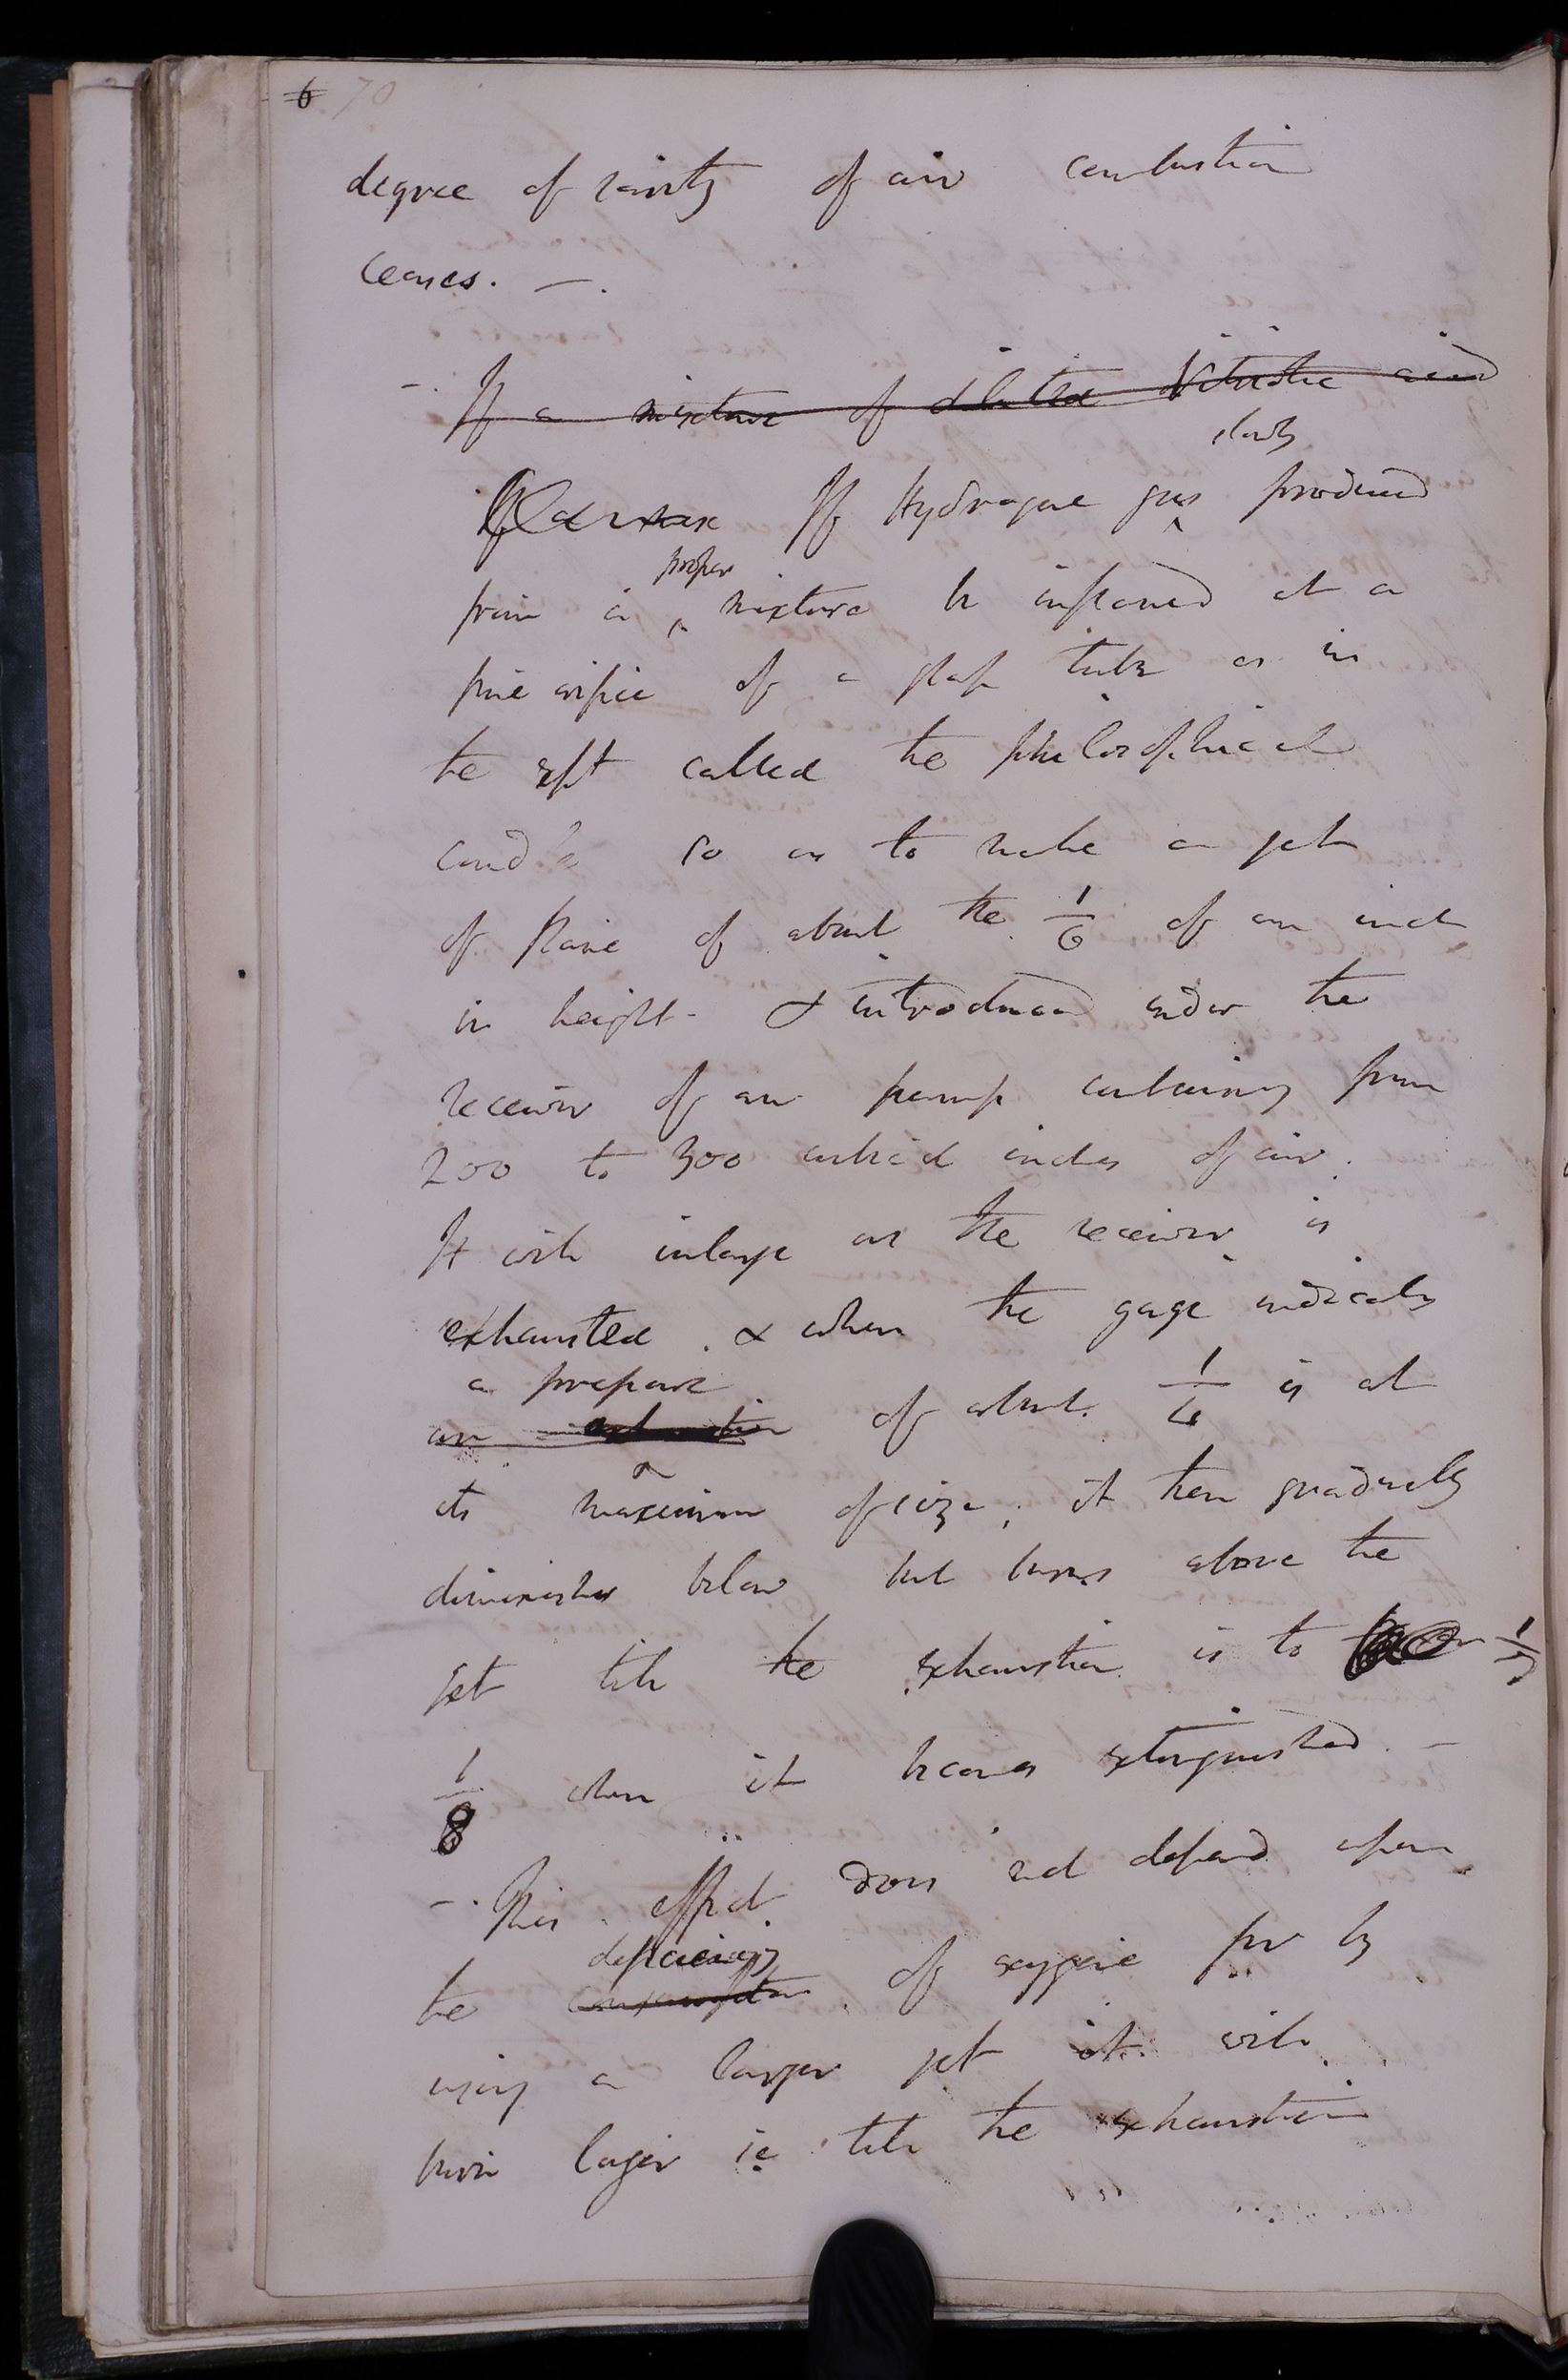 6 70
degree of rarity of air combustion
ceases. —.
—. If a mixture of diluted Vitriolic acid
slowly
If Hydrogene gas ^ produced
proper
from a ^ mixture be inflamed at a
fine orifice of a glass tube as in
the expt called the philosophical
candle so as to make a jet
of flame of about the 1/6 of an inch
in height - & introduced under the
receiver of air pump containing from
200 to 300 cubical inches of air.
It will inlarge as the receiver is
exhausted. & when the gage indicates
a pressure
an exhaustion of about 1/4 is at
its maximum of size; it then gradually
diminishes below but burns above the
jet till the exhaustion is to 1/7
1/8 when it becomes extinguished. —
—. This effect does not depend upon
deficiency
the consumption of oxygene for by
using a larger jet it will
burn longer ie till the exhaustion